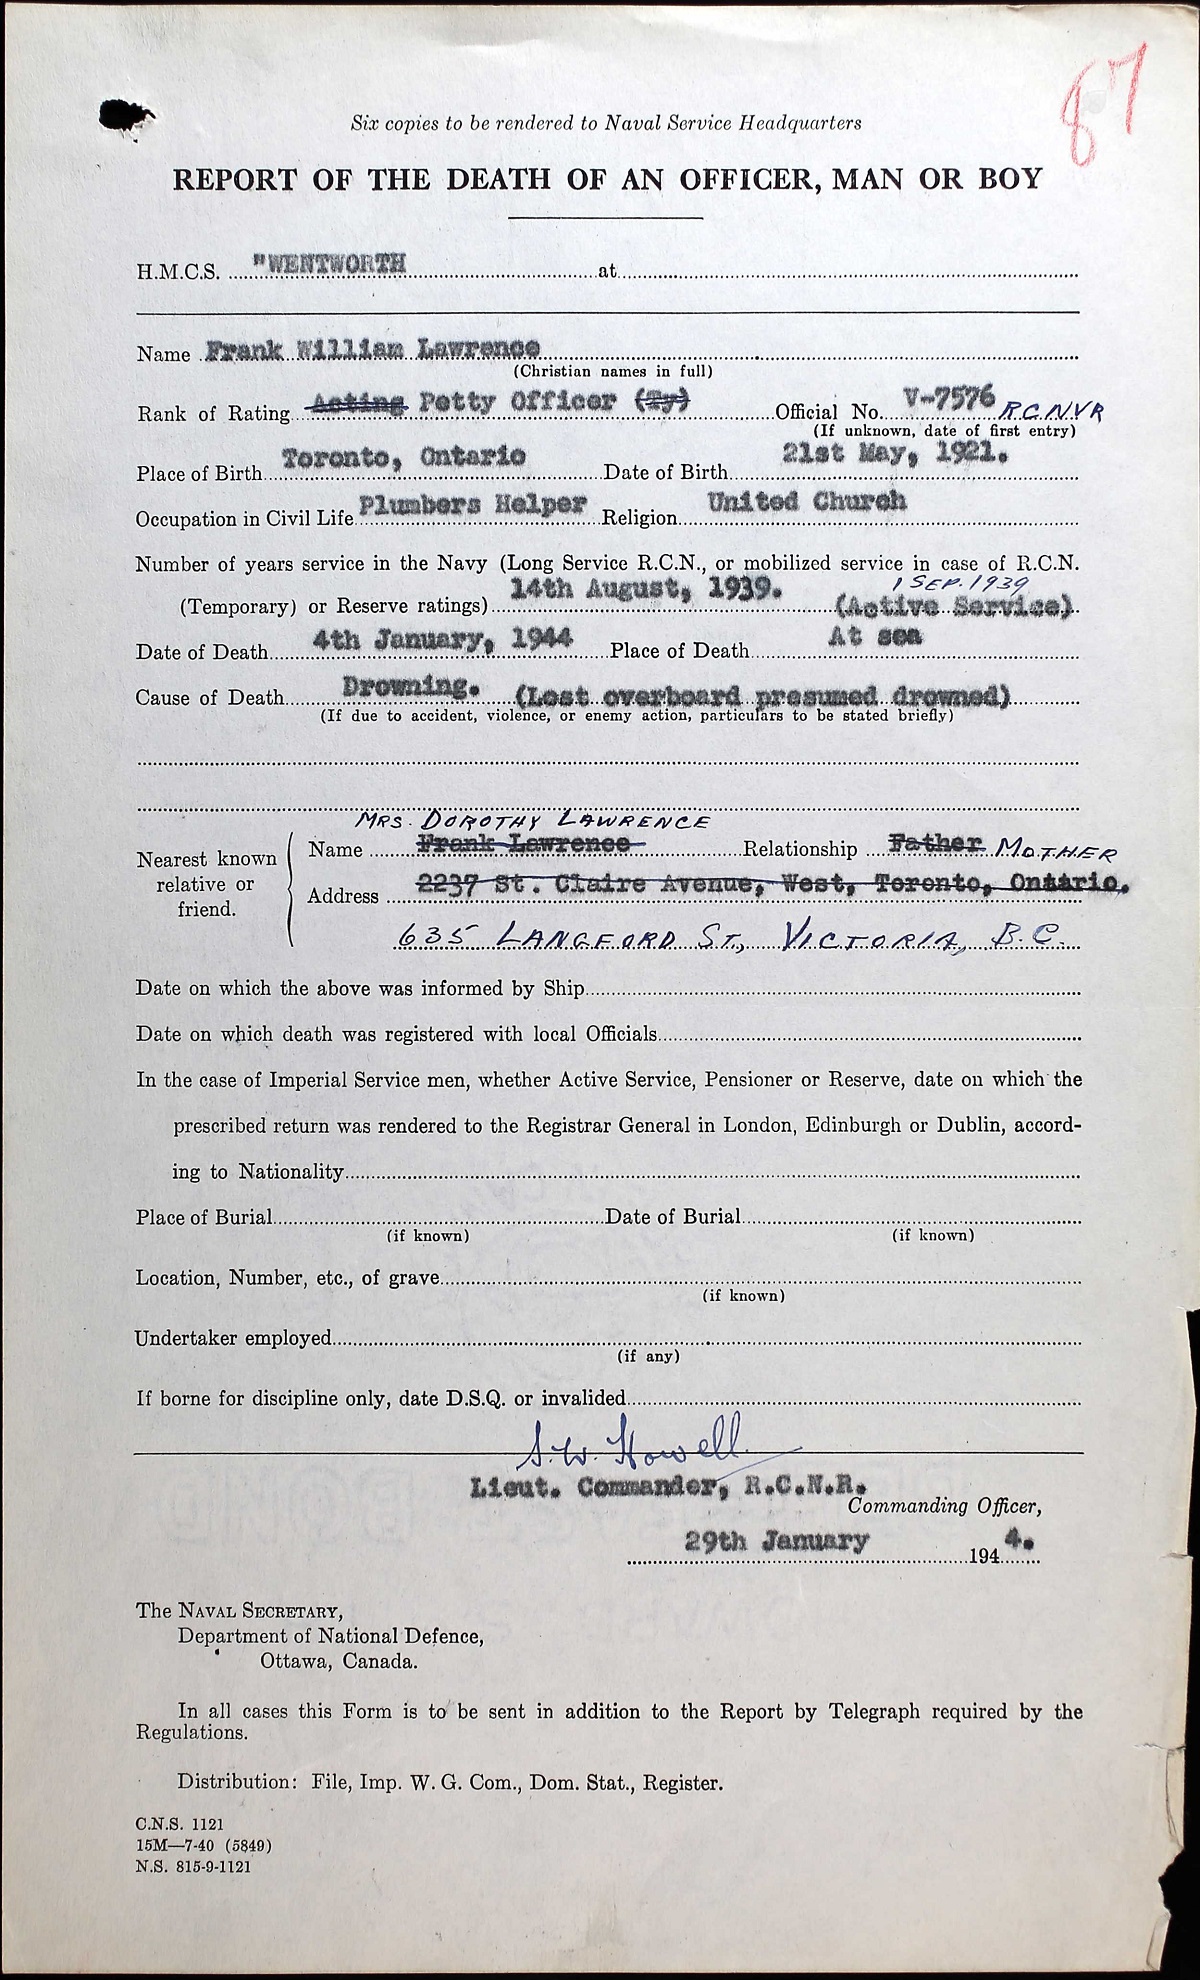 87
Six copies to be rendered to Naval Service Headquarters
REPORT OF THE DEATH OF AN OFFICER, MAN OR BOY
H.M.C.S. "WENTWORTH at
Name Frank William Lawrence
(Christian names in full)
Rank of Rating Acting Petty Officer (Ty) Official No. V-7576 R.C.N.V.R
(If unknown, date of first entry)
Place of Birth Toronto, Ontario Date of Birth 21st May, 1921.
Occupation in Civil Life Plumbers Helper Religion United Church
Number of years service in the Navy (Long Service R.C.N., or mobilized service in case of R.C.N.
1 SEP. 1939
(Temporary) or Reserve ratings) 14th August, 1939. (Active Service)
Date of Death 4th January, 1944 Place of Death At sea
Cause of Death Drowning. (Lost overboard presumed drowned)
(If due to accident, violence, or enemy action, particulars to be stated briefly)
MRS. DOROTHY LAWRENCE
Nearest known relative or friend.
Name Frank Lawrence Relationship Father MOTHER
Address 2237 St. Claire Avenue, West, Toronto, Ontario.
635 LANGFORD ST., VICTORIA, B.C.
Date on which the above was informed by Ship
Date on which death was registered with local Officials
In the case of Imperial Service men, whether Active Service, Pensioner or Reserve, date on which the
prescribed return was rendered to the Registrar General in London, Edinburgh or Dublin, accord-
ing to Nationality
Place of Burial Date of Burial
(if known) (if known)
Location, Number, etc., of grave
(if known)
Undertaker employed
(if any)
If borne for discipline only, date D.S.Q. or invalided
S.W. Howell
Lieut. Commander, R.C.N.R.
Commanding Officer,
29th January 1944.
The NAVAL SECRETARY,
Department of National Defence,
Ottawa, Canada.
In all cases this Form is to be sent in addition to the Report by Telegraph required by the
Regulations.
Distribution: File, Imp. W. G. Com., Dom. Stat., Register.
C.N.S. 1121
15M—7-40 (5849)
N.S. 815-9-1121